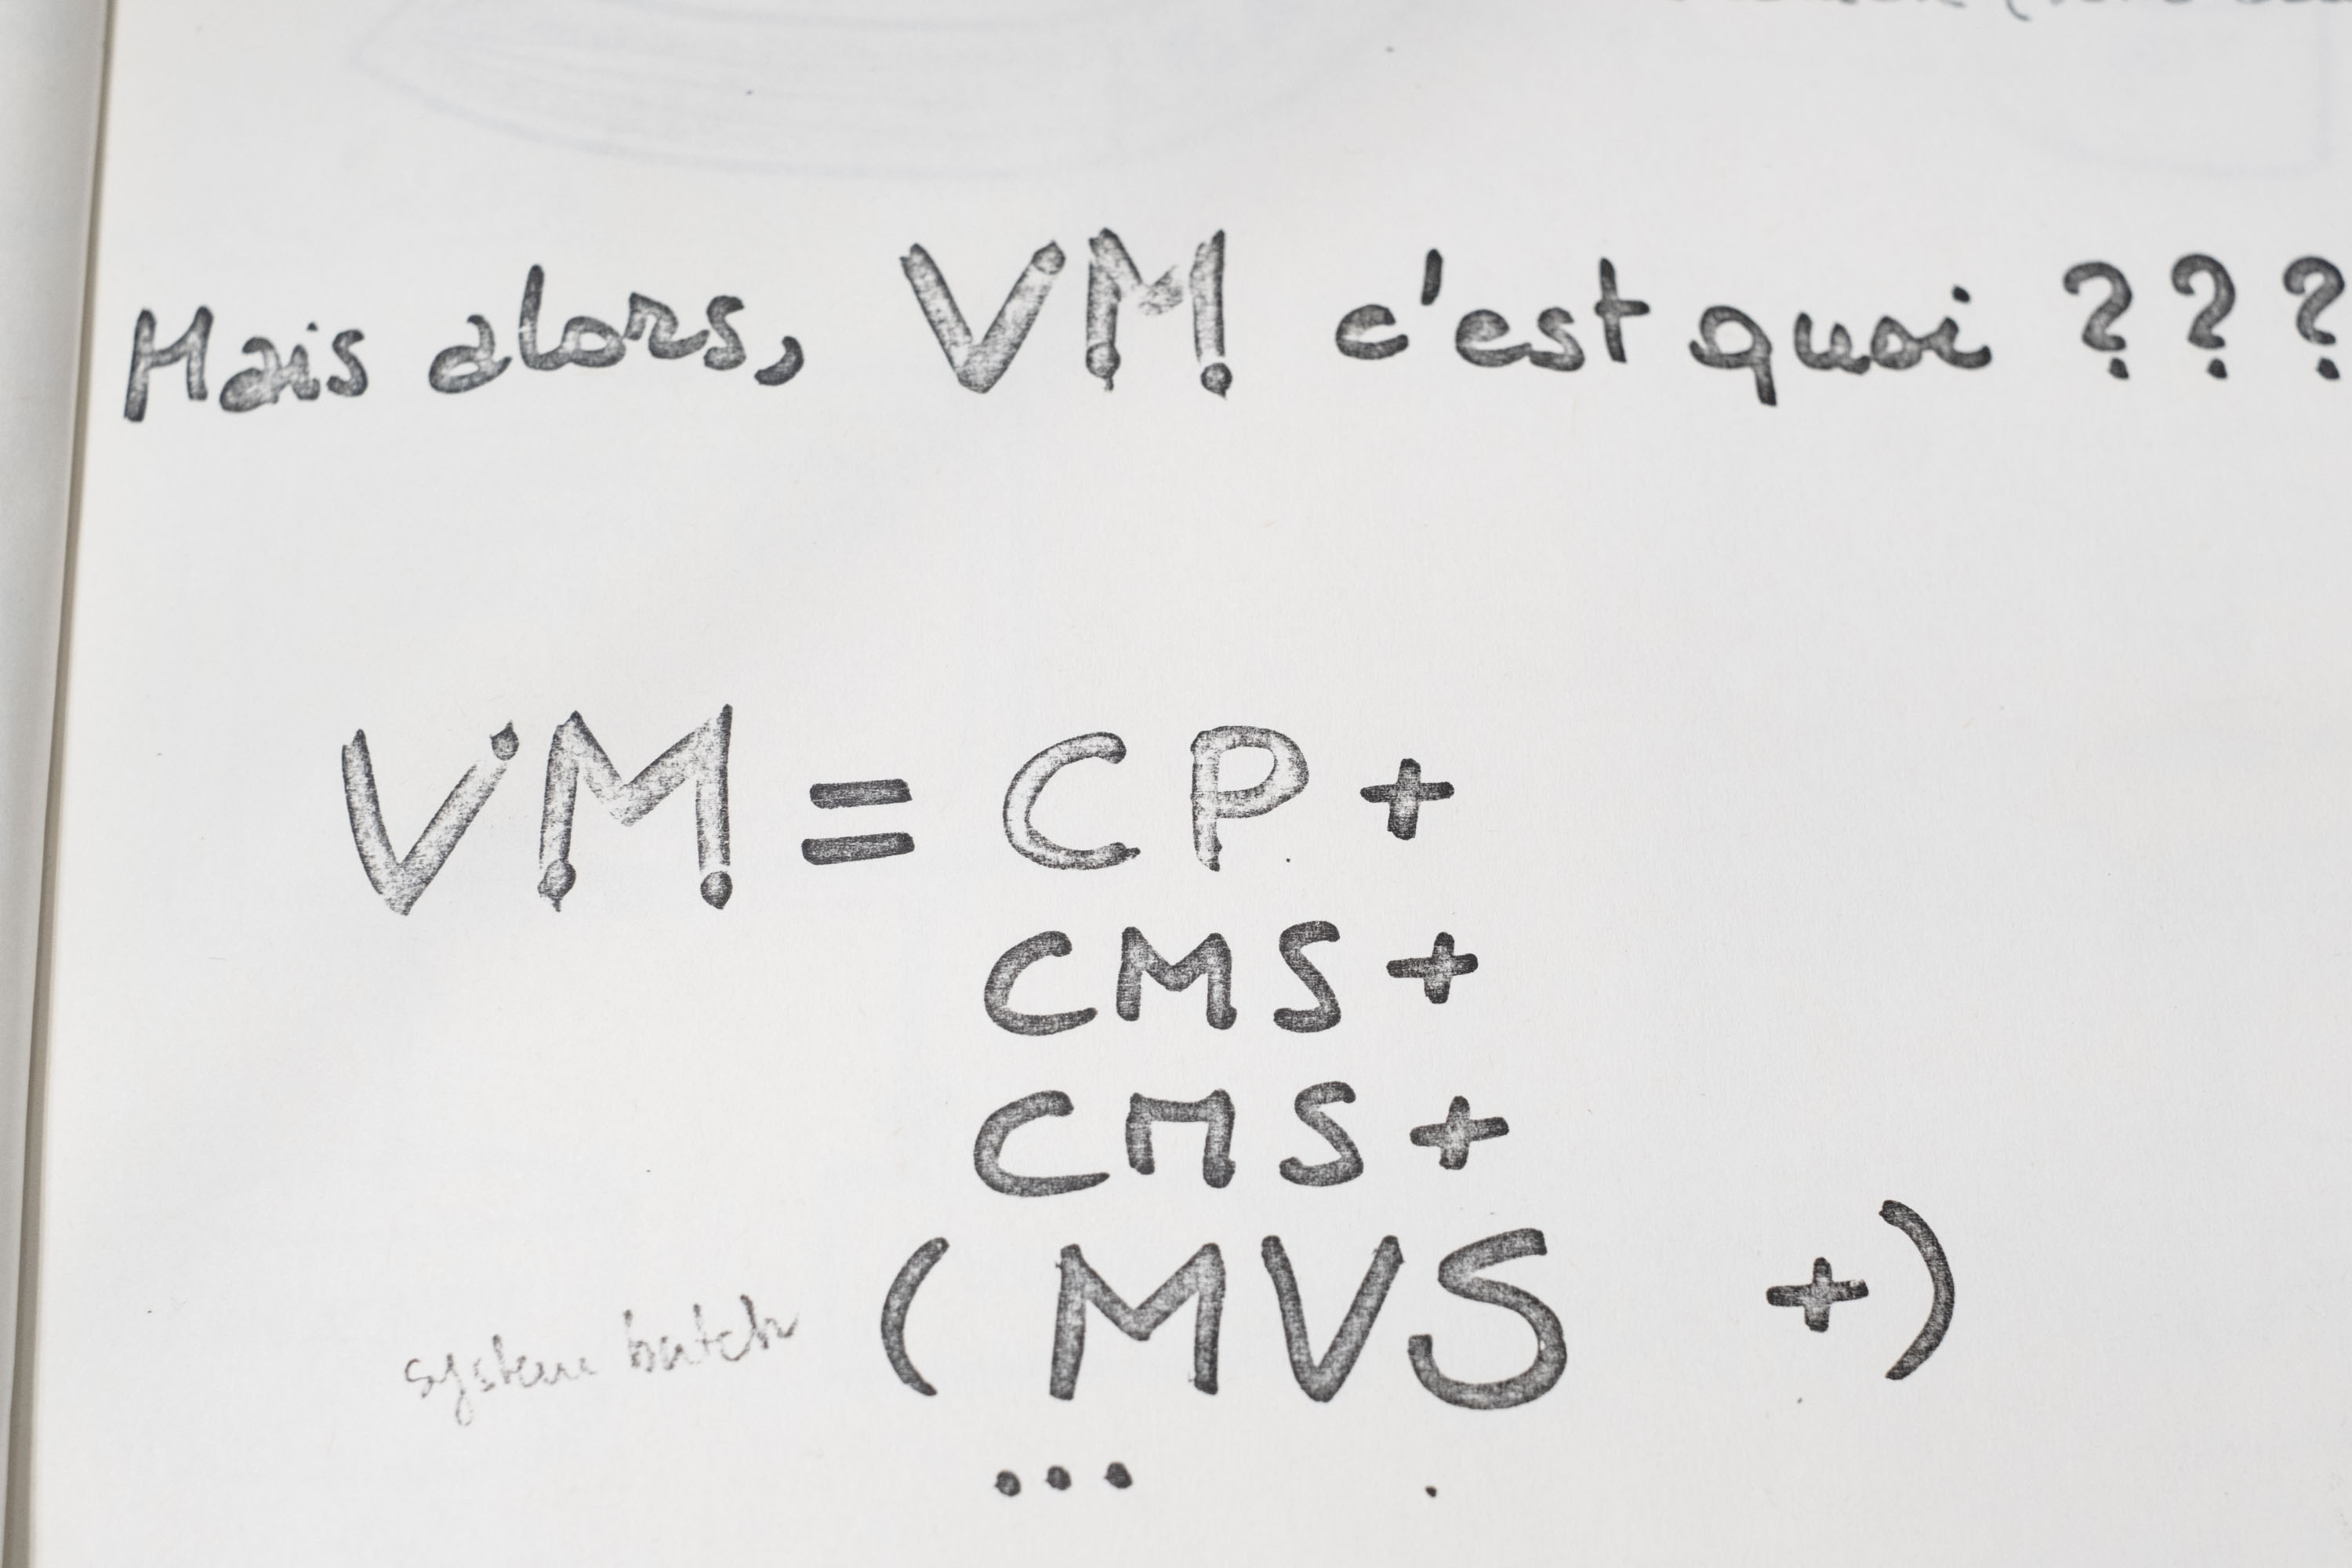 Mais alors, VM c'est quoi ???
VM = CP +
CMS +
CMS +
system batch ( MVS +)
...